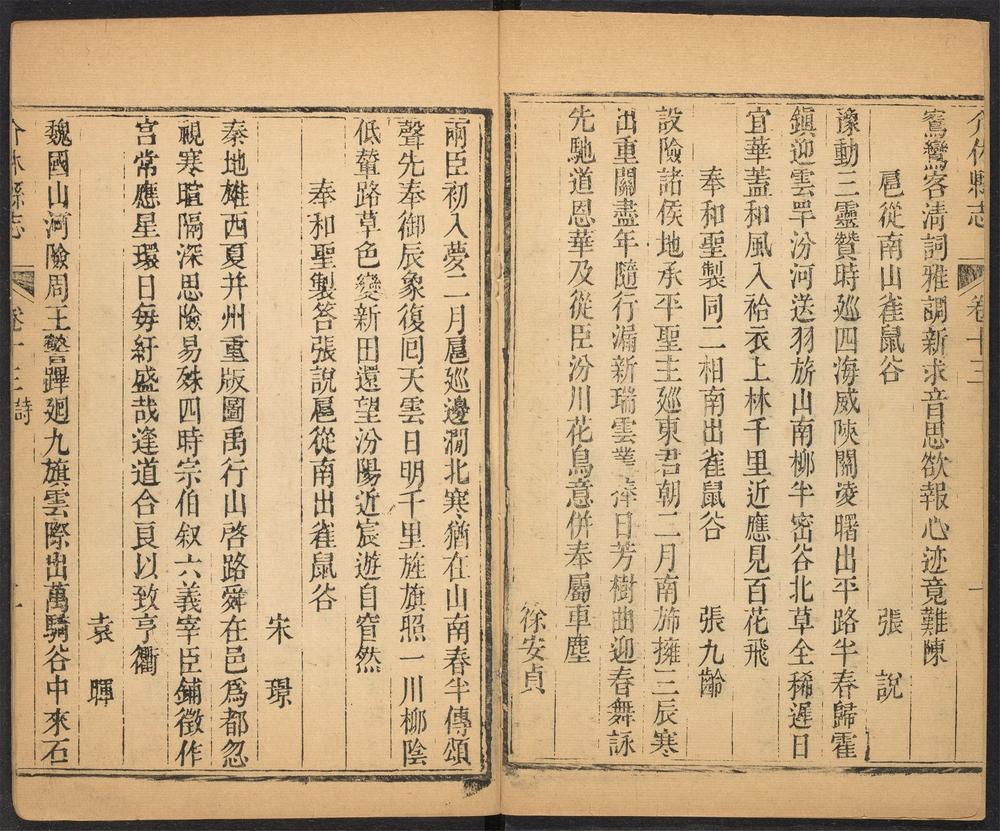 介休縣志
卷十三
鴛鸞客清詞雅調新求音思欲報心迹竟難陳
扈從南山雀鼠谷
張說
豫動三靈贊時廵四海威陝關凌曙出平路半春歸霍
鎮迎雲罕汾河送羽旂山南柳半密谷北草全稀遲日
宜華蓋和風入袷衣上林千里近應見百花飛
奉和聖製同二相南出雀鼠谷
張九齡
設險諸侯地承平聖主廵東君朝二月南斾擁三辰寒
出重關盡年隨行漏新瑞雲叢捧日芳樹曲迎春舞詠
先馳道恩華及從臣汾川花鳥意併奉屬車塵
徐安貞
兩臣初入夢二月扈廵邊澗北寒猶在山南春半傳頌
聲先奉御辰象復回天雲日明千里旌旗照一川柳陰
低輦路草色變新田還望汾陽近宸遊自窅然
奉和聖製答張說扈從南出雀鼠谷
宋璟
秦地雄西夏并州重版圖禹行山啓路舜在邑爲都忽
視寒暄隔深思險易殊四時宗伯叙六義宰臣鋪徵作
宮常應星環日每紆盛哉逢道合良以致亨衢
袁暉
魏國山河險周王警蹕廻九旗雲際出萬騎谷中來石
介休縣志
卷十三 詩